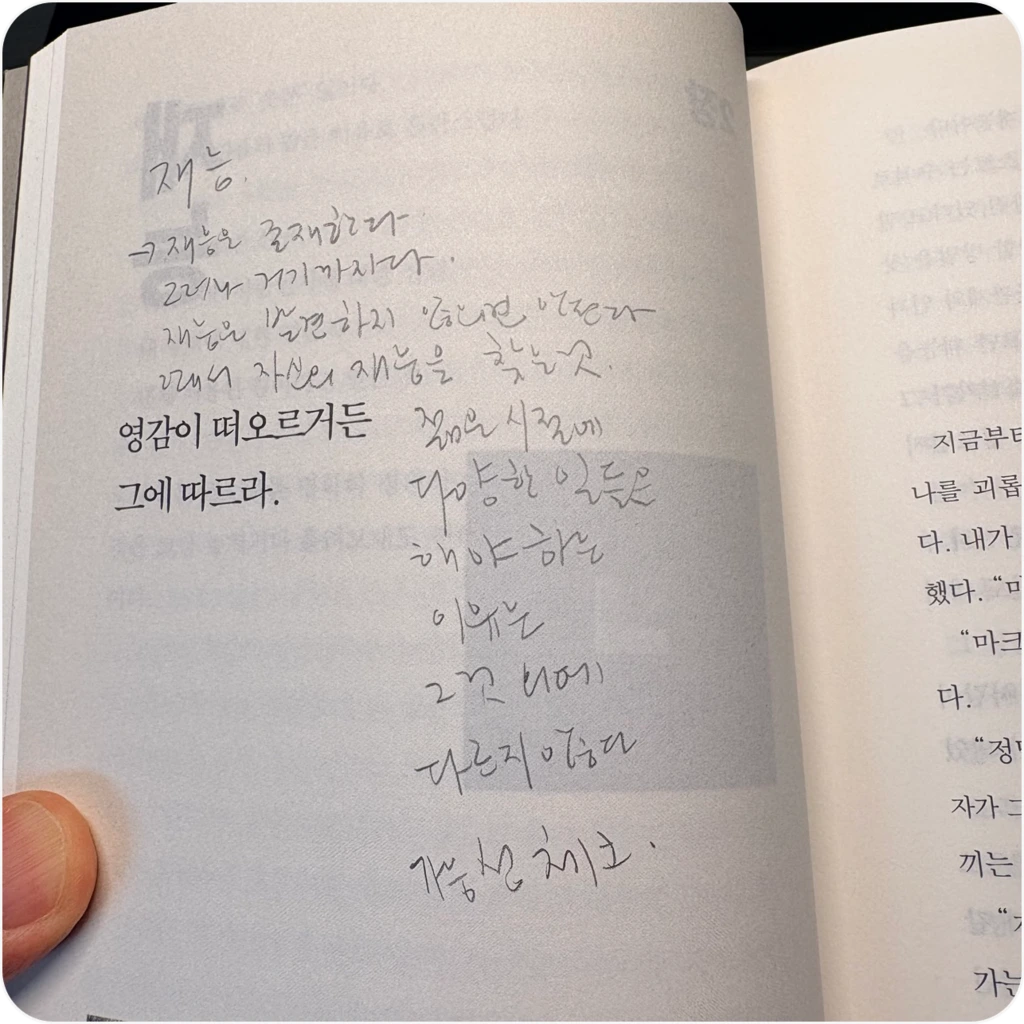 재능.
→ 재능은 존재한다
그러나 거기까지다.
재능은 발견하지 않으면 안된다
그래서 자신의 재능을 찾는 것.
영감이 떠오르거든
그에 따르라.
젊은 시절에
다양한 일들을
해야 하는
이유는
그것 외에
다르지 않다
가능성 체크.
지금부터
나를 괴롭
다. 내가
했다. “마
“마크
다.
“정말
자가 그
끼는
가는